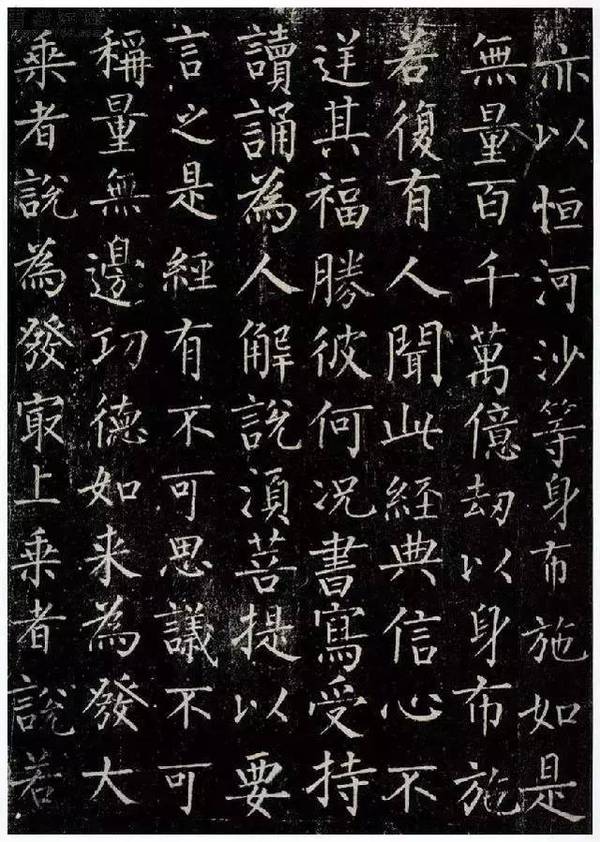 亦以恒河沙等身布施如是
無量百千萬億劫以身布施
若復有人聞此經典信心不
逆其福勝彼何况書寫受持
讀誦為人解說湏菩提以要
言之是經有不可思議不可
稱量無邊功德如来為發大
乘者說為發冣上乘者說若